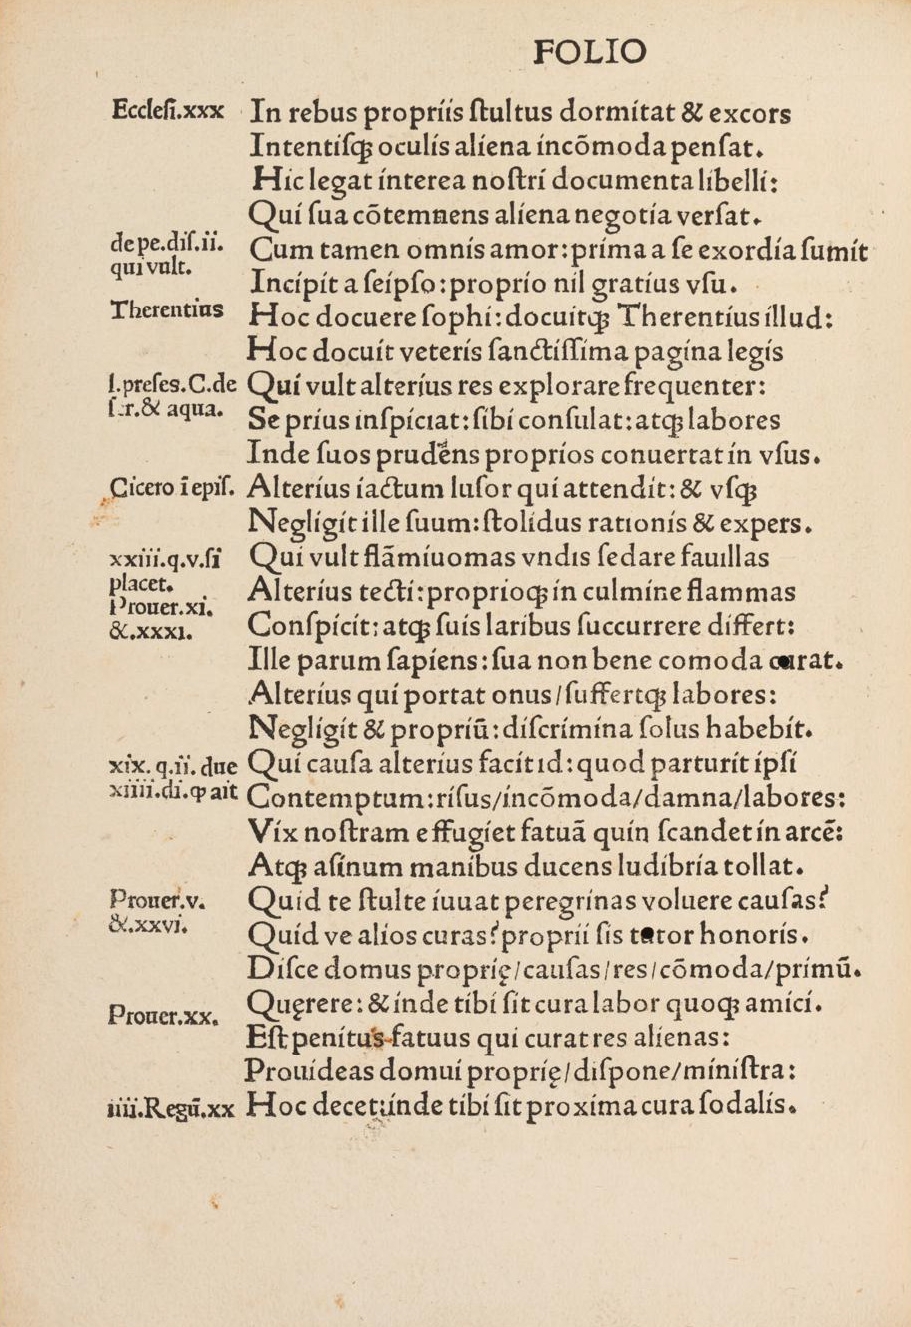 FOLIO
Eccleſi.xxx
In rebus propriis ſtultus dormitat & excors
Intentiſqꝫ oculis aliena incõmoda penſat.
Hic legat interea noſtri documenta libelli:
Qui ſua cõtemnens aliena negotia verſat.
de pe.diſ.ii.
qui vult.
Cum tamen omnis amor:prima a ſe exordia ſumit
Incipit a ſeipſo:proprio nil gratius vſu.
Therentius
Hoc docuere ſophi:docuitqꝫ Therentius illud:
Hoc docuit veteris ſanctiſſima pagina legis
l.preſes.C.de
ſer.& aqua.
Qui vult alterius res explorare frequenter:
Se prius inſpiciat:ſibi conſulat:atqꝫ labores
Inde ſuos prudẽns proprios conuertat in vſus.
Cicero ĩ epiſ.
Alterius iactum luſor qui attendit:& vſqꝫ
Negligit ille ſuum:ſtolidus rationis & expers.
xxiii.q.v.ſi
placet.
Prouer.xi.
&.xxxi.
Qui vult flãmiuomas vndis ſedare fauillas
Alterius tecti:proprioqꝫ in culmine flammas
Conſpicit:atqꝫ ſuis laribus ſuccurrere differt:
Ille parum ſapiens:ſua non bene comoda curat.
Alterius qui portat onus/ſuffertqꝫ labores:
Negligit & propriũ:diſcrimina ſolus habebit.
xix. q.ii. due
xiiii.di.ꝙ ait
Qui cauſa alterius facit id:quod parturit ipſi
Contemptum:riſus/incõmoda/damna/labores:
Vix noſtram effugiet fatuã quin ſcandet in arcẽ:
Atqꝫ aſinum manibus ducens ludibria tollat.
Prouer.v.
&.xxvi.
Quid te ſtulte iuuat peregrinas voluere cauſas?
Quid ve alios curas?proprii ſis tutor honoris.
Diſce domus proprię/cauſas/res/cõmoda/primũ.
Quęrere:& inde tibi ſit cura labor quoqꝫ amici.
Prouer.xx.
Eſt penitus fatuus qui curat res alienas:
Prouideas domui proprię/diſpone/miniſtra:
iiii.Regũ.xx
Hoc decet:inde tibi ſit proxima cura ſodalis.